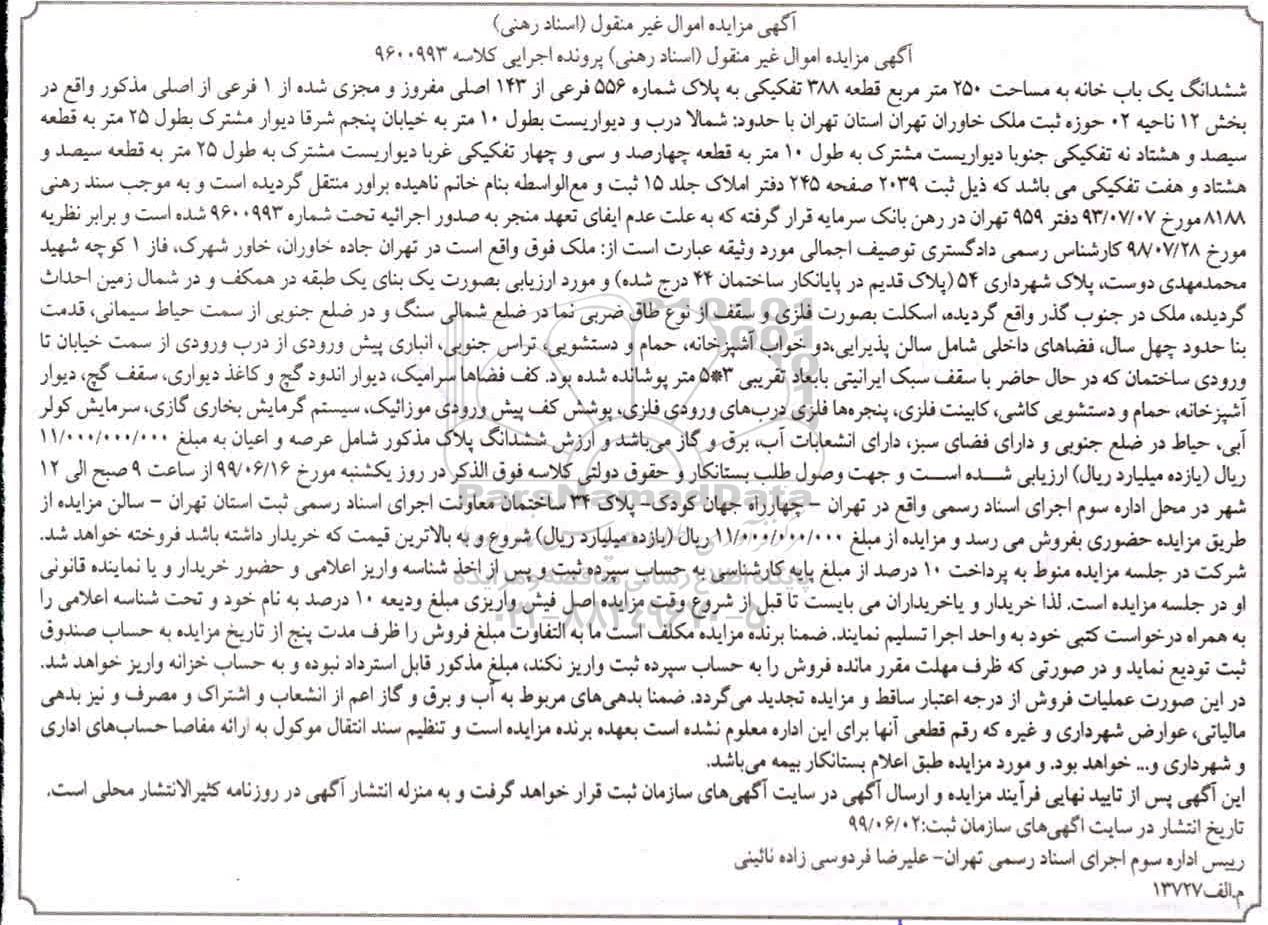 آگهی مزایده اموال غیر منقول (اسناد رهنی)
آگهی مزایده اموال غیر منقول (اسناد رهنی) پرونده اجرایی کلاسه ۹۶۰۰۹۹۳
ششدانگ یک باب خانه به مساحت ۲۵۰ متر مربع قطعه ۳۸۸ تفکیکی به پلاک شماره ۵۵۶ فرعی از ۱۴۳ اصلی مفروز و مجزی شده از ۱ فرعی از اصلی مذکور واقع در
بخش ۱۲ ناحیه ۰۲ حوزه ثبت ملک خاوران تهران استان تهران با حدود: شمالا درب و دیواریست بطول ۱۰ متر به خیابان پنجم شرقا دیوار مشترک بطول ۲۵ متر به قطعه
سیصد و هشتاد نه تفکیکی جنوبا دیواریست مشترک به طول ۱۰ متر به قطعه چهارصد و سی و چهار تفکیکی غربا دیواریست مشترک به طول ۲۵ متر به قطعه سیصد و
هشتاد و هفت تفکیکی می باشد که ذیل ثبت ۲۰۳۹ صفحه ۲۴۵ دفتر املاک جلد ۱۵ ثبت و مع‌الواسطه بنام خانم ناهیده براور منتقل گردیده است و به موجب سند رهنی
۸۱۸۸ مورخ ۹۳/۰۷/۰۷ دفتر ۹۵۹ تهران در رهن بانک سرمایه قرار گرفته که به علت عدم ایفای تعهد منجر به صدور اجرائیه تحت شماره ۹۶۰۰۹۹۳ شده است و برابر نظریه
مورخ ۹۸/۰۷/۲۸ کارشناس رسمی دادگستری توصیف اجمالی مورد وثیقه عبارت است از: ملک فوق واقع است در تهران جاده خاوران، خاور شهرک، فاز ۱ کوچه شهید
محمدمهدی دوست، پلاک شهرداری ۵۴ (پلاک قدیم در پایانکار ساختمان ۴۴ درج شده) و مورد ارزیابی بصورت یک بنای یک طبقه در همکف و در شمال زمین احداث
گردیده، ملک در جنوب گذر واقع گردیده، اسکلت بصورت فلزی و سقف از نوع طاق ضربی نما در ضلع شمالی سنگ و در ضلع جنوبی از سمت حیاط سیمانی، قدمت
بنا حدود چهل سال، فضاهای داخلی شامل سالن پذیرایی،دو خواب آشپزخانه، حمام و دستشویی، تراس جنوبی، انباری پیش ورودی از درب ورودی از سمت خیابان تا
ورودی ساختمان که در حال حاضر با سقف سبک ایرانیتی بابعاد تقریبی ۳*۵ متر پوشانده شده بود. کف فضاها سرامیک، دیوار اندود گچ و کاغذ دیواری، سقف گچ، دیوار
آشپزخانه، حمام و دستشویی کاشی، کابینت فلزی، پنجره‌ها فلزی درب‌های ورودی فلزی، پوشش کف پیش ورودی موزائیک، سیستم گرمایش بخاری گازی، سرمایش کولر
آبی، حیاط در ضلع جنوبی و دارای فضای سبز، دارای انشعابات آب، برق و گاز می‌باشد و ارزش ششدانگ پلاک مذکور شامل عرصه و اعیان به مبلغ ۱۱/۰۰۰/۰۰۰/۰۰۰
ریال (یازده میلیارد ریال) ارزیابی شده است و جهت وصول طلب بستانکار و حقوق دولتی کلاسه فوق الذکر در روز یکشنبه مورخ ۹۹/۰۶/۱۶ از ساعت ۹ صبح الی ۱۲
شهر در محل اداره سوم اجرای اسناد رسمی واقع در تهران – چهارراه جهان کودک– پلاک ۳۴ ساختمان معاونت اجرای اسناد رسمی ثبت استان تهران – سالن مزایده از
طریق مزایده حضوری بفروش می رسد و مزایده از مبلغ ۱۱/۰۰۰/۰۰۰/۰۰۰ ریال (یازده میلیارد ریال) شروع و به بالاترین قیمت که خریدار داشته باشد فروخته خواهد شد.
شرکت در جلسه مزایده منوط به پرداخت ۱۰ درصد از مبلغ پایه کارشناسی به حساب سپرده ثبت و پس از اخذ شناسه واریز اعلامی و حضور خریدار و یا نماینده قانونی
او در جلسه مزایده است. لذا خریدار و یاخریداران می بایست تا قبل از شروع وقت مزایده اصل فیش واریزی مبلغ ودیعه ۱۰ درصد به نام خود و تحت شناسه اعلامی را
به همراه درخواست کتبی خود به واحد اجرا تسلیم نمایند. ضمنا برنده مزایده مکلف است ما به التفاوت مبلغ فروش را ظرف مدت پنج از تاریخ مزایده به حساب صندوق
ثبت تودیع نماید و در صورتی که ظرف مهلت مقرر مانده فروش را به حساب سپرده ثبت واریز نکند، مبلغ مذکور قابل استرداد نبوده و به حساب خزانه واریز خواهد شد.
در این صورت عملیات فروش از درجه اعتبار ساقط و مزایده تجدید می‌گردد. ضمنا بدهی‌های مربوط به آب و برق و گاز اعم از انشعاب و اشتراک و مصرف و نیز بدهی
مالیاتی، عوارض شهرداری و غیره که رقم قطعی آنها برای این اداره معلوم نشده است بعهده برنده مزایده است و تنظیم سند انتقال موکول به ارائه مفاصا حساب‌های اداری
و شهرداری و... خواهد بود. و مورد مزایده طبق اعلام بستانکار بیمه می‌باشد.
این آگهی پس از تایید نهایی فرآیند مزایده و ارسال آگهی در سایت آگهی‌های سازمان ثبت قرار خواهد گرفت و به منزله انتشار آگهی در روزنامه کثیرالانتشار محلی است.
تاریخ انتشار در سایت اگهی‌های سازمان ثبت:۹۹/۰۶/۰۲
رییس اداره سوم اجرای اسناد رسمی تهران– علیرضا فردوسی زاده نائینی
م.الف۱۳۷۲۷
ParsNamadData
پایگاه اطلاع رسانی مناقصه و مزایده
۰۲۱-۸۸۳۴۹۶۷۰-۵